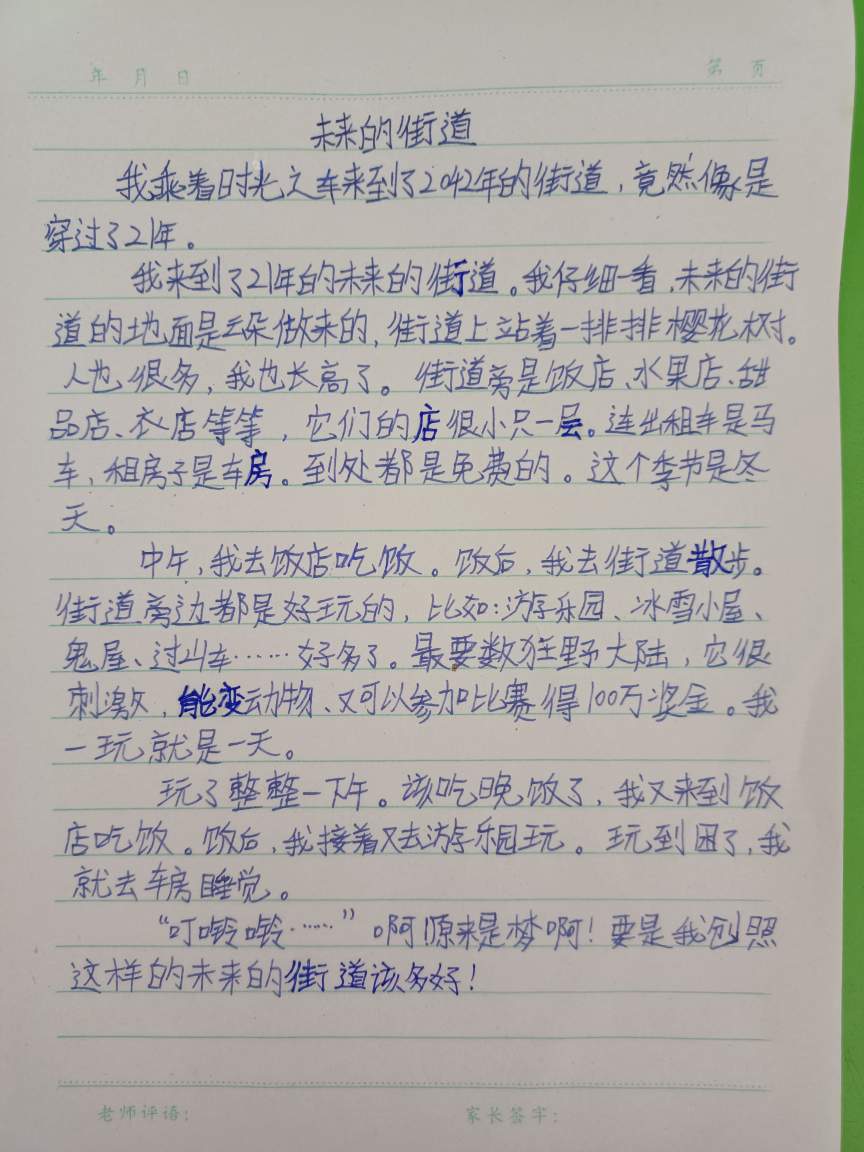 年 月 日
第 页
未来的街道
我乘着时光之车来到了2042年的街道，竟然像是
穿过了21年。
我来到了21年的未来的街道。我仔细一看，未来的街
道的地面是云朵做来的，街道上站着一排排樱花树。
人也很多，我也长高了。街道旁是饭店、水果店、甜
品店、衣店等等，它们的店很小只一层。连出租车是马
车，租房子是车房。到处都是免费的。这个季节是冬
天。
中午，我去饭店吃饭。饭后，我去街道散步。
街道旁边都是好玩的，比如：游乐园、冰雪小屋、
鬼屋、过山车……好多了。最要数狂野大陆，它很
刺激，能变动物、又可以参加比赛得100万奖金。我
一玩就是一天。
玩了整整一下午。该吃晚饭了，我又来到饭
店吃饭。饭后，我接着又去游乐园玩。玩到困了，我
就去车房睡觉。
“叮呤呤……”啊原来是梦啊！要是我创照
这样的未来的街道该多好！
老师评语：
家长签字：